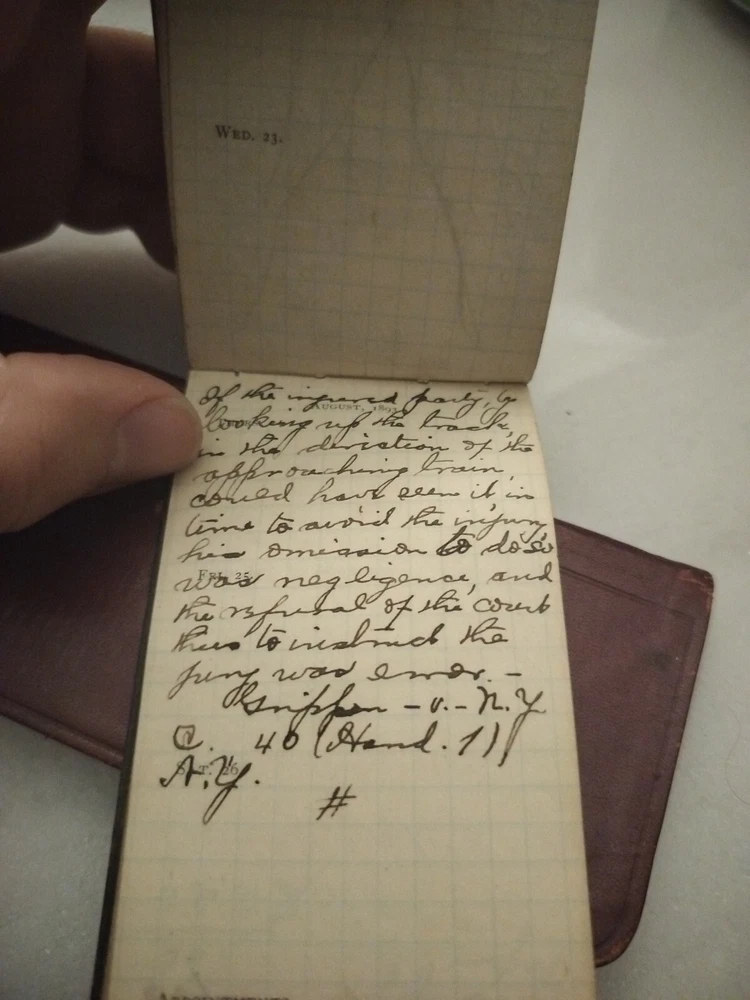 WED. 23.
of the injured party, by
AUGUST, 1893
looking up the track,
in the direction of the
approaching train,
could have seen it in
time to avoid the injury
his omission to do so
FRI. 25.
was negligence, and
the refusal of the court
thus to instruct the
jury was error. -
- v. - N.Y
C. 40 (Hand. 1)
SAT. 26
N.Y.
#
APPOINTMENTS